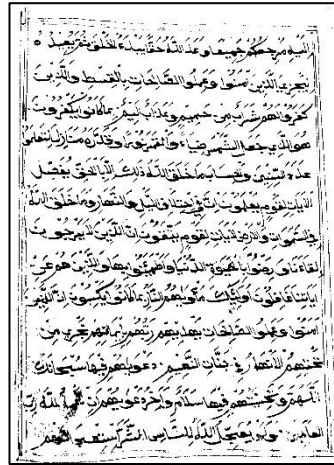 اليه مرجعكم جميعا وعد الله حقا انه يبدء الخلق ثم يعيده
ليجزي الذين امنوا وعملوا الصالحات بالقسط والذين
كفروا لهم شراب من حميم وعذاب اليم بما كانوا يكفرون
هو الذي جعل الشمس ضياء والقمر نورا وقدره منازل لتعلموا
عدد السنين والحساب ما خلق الله ذلك الا بالحق يفصل
الايات لقوم يعلمون ان في اختلاف اليل والنهار وما خلق الله
في السموات والارض لايات لقوم يتقون ان الذين لا يرجون
لقاءنا ورضوا بالحيوة الدنيا واطمئنوا بها والذين هم عن
اياتنا غافلون اولئك ماويهم النار بما كانوا يكسبون ان الذين
امنوا وعملوا الصالحات يهديهم ربهم بايمانهم تجري من
تحتهم الانهار في جنات النعيم دعويهم فيها سبحانك
اللهم وتحيتهم فيها سلام واخر دعويهم ان الحمد لله رب
العالمين ولو يعجل الله للناس الشر استعجالهم